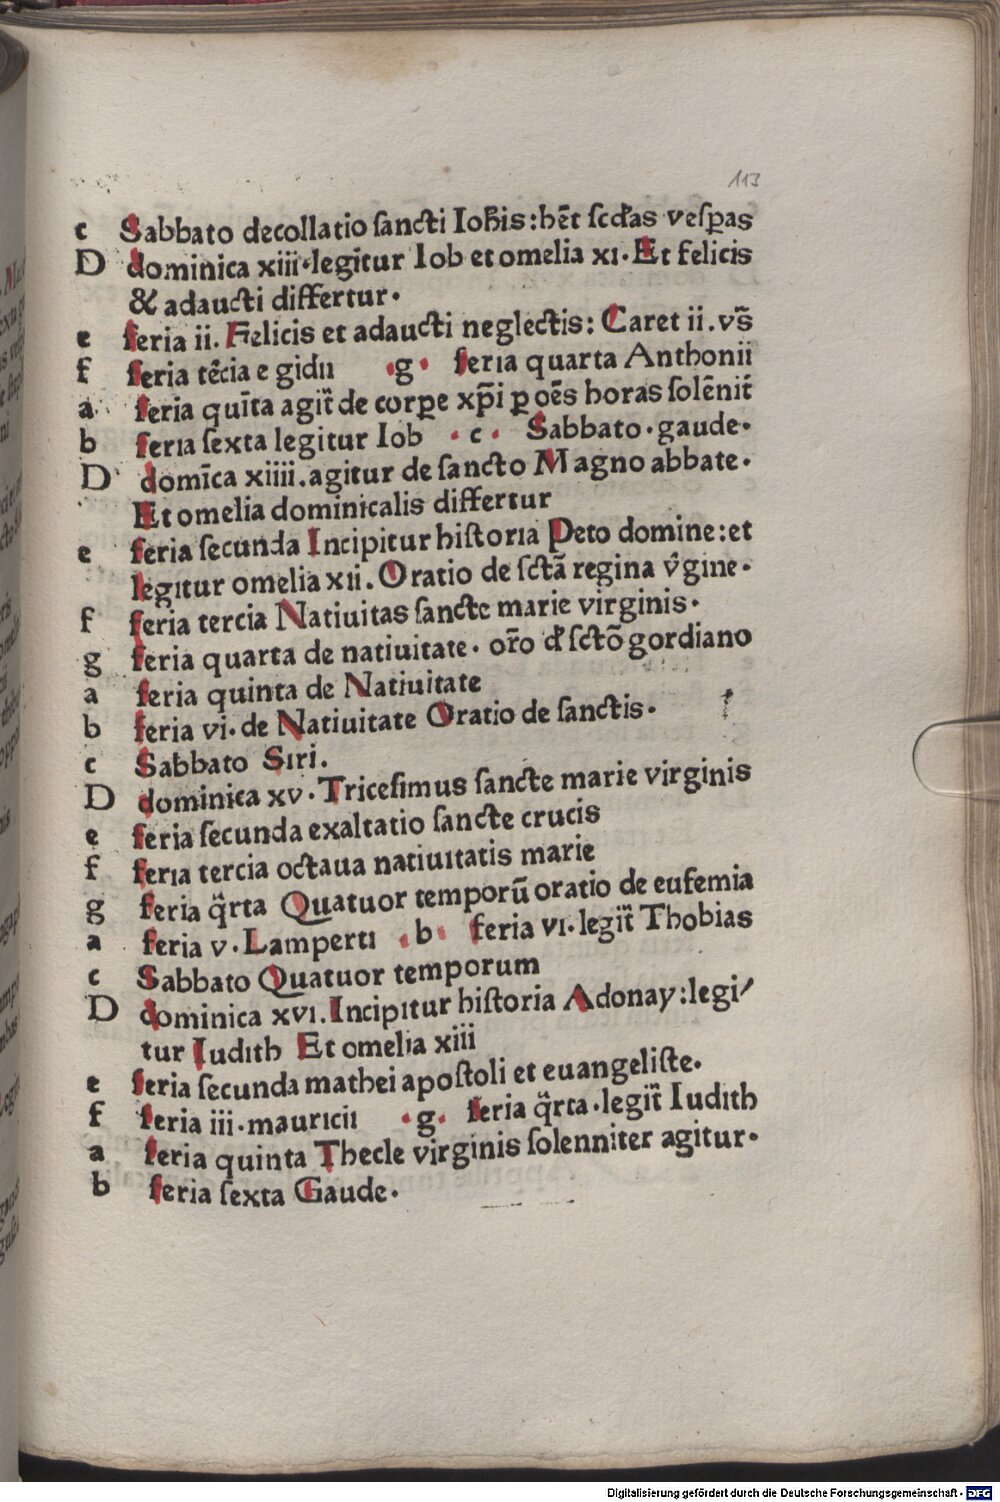 113
c Sabbato decollatio ſancti Ioh̄is:hēt ſcd̄as veſp̱as
D dominica xiii·legitur Iob et omelia xi·Et felicis
& adaucti differtur·
e feria ii. Felicis et adaucti neglectis: Caret ii.vs̄
f feria tēcia e gidii ·g· feria quarta Anthonii
a feria quīta agit̄ de corp̱e xp̄i p̱ oēs horas ſolēnit̄
b feria ſexta legitur Iob ·c· Sabbato·gaude·
D domīca xiiii.agitur de ſancto Magno abbate·
Et omelia dominicalis differtur
e feria ſecunda Incipitur hiſtoria Peto domine:et
legitur omelia xii. Oratio de ſctā regina v̄gine·
f feria tercia Natiuitas ſancte marie virginis·
g feria quarta de natiuitate· or̄o d̄ ſctō gordiano
a feria quinta de Natiuitate
b feria vi·de Natiuitate Oratio de ſanctis·
c Sabbato Siri.
D dominica xv·Triceſimus ſancte marie virginis
e feria ſecunda exaltatio ſancte crucis
f feria tercia octaua natiuitatis marie
g feria q̄rta Quatuor temporū oratio de eufemia
a feria v·Lamperti ·b· feria vi·legit̄ Thobias
c Sabbato Quatuor temporum
D dominica xvi.Incipitur hiſtoria Adonay:legi/
tur Iudith Et omelia xiii
e feria ſecunda mathei apoſtoli et euangeliſte·
f feria iii·mauricii ·g· feria q̄rta·legit̄ Iudith
a feria quinta Thecle virginis ſolenniter agitur·
b feria ſexta Gaude·
Digitalisierung gefördert durch die Deutsche Forschungsgemeinschaft - DFG